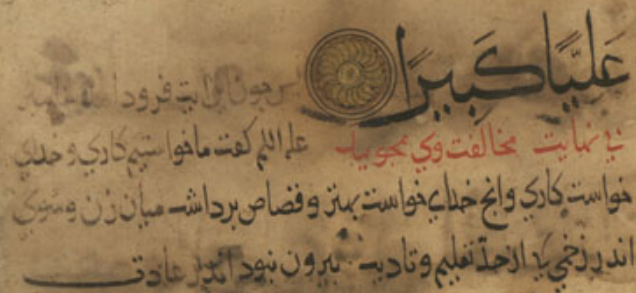 عَلِيًّا كَبِيرًا پس چون این آیت فرود
بی نهایت مخالفت وی مجویید علیه السلم کفت ما خواستیم کاری و خدای
خواست کاری وانچ خدای خواست بهتر و قصاص برداشت میان زن و شوی
اندر زخمی که از حدّ تعلیم و تادیب بیرون نبود اندر عادت